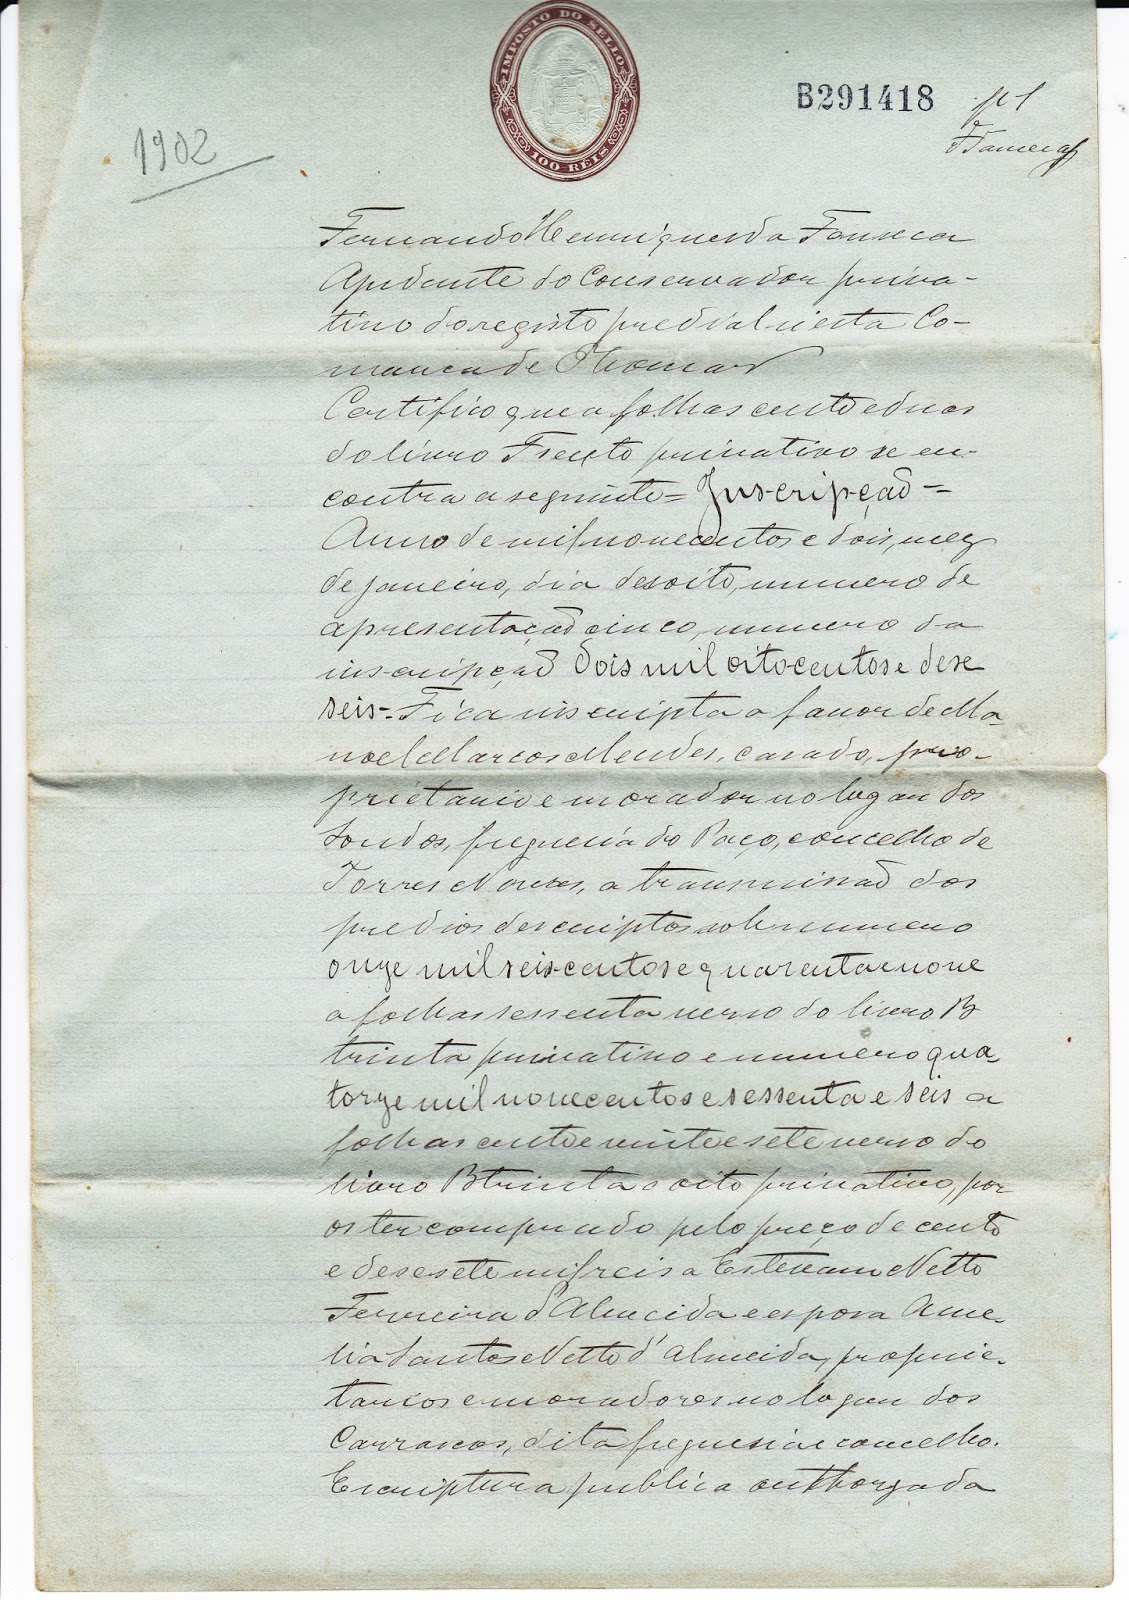 IMPOSTO DO SELLO
100 REIS
B291418
1902
Fernando Henriques da Fonseca
Ajudante do Conservador priva-
tivo do registo predial nesta Co-
marca de Thomar
Certifico que a folhas cento e duas
do livro F sexto privativo se en-
contra a seguinte = Inscripção =
Anno de mil novecentos e dois, mez
de janeiro, dia desoito, numero de
apresentação cinco, numero da
inscripção dois mil oitocentos e dese
seis - Fica inscripta a favor de Ma-
noel Marcos Mendes, casado, pro-
prietario e morador no logar dos
Soudos, freguesia do Paço, concelho de
Torres Novas, a transmissão dos
predios descriptos sob numero
onze mil seis centos e quarenta e nove
a folhas sessenta verso do livro B
trinta privativo e numero qua-
torze mil novecentos e sessenta e seis a
folhas cento e vinte e sete verso do
livro B trinta e oito privativo, por
os ter comprado pelo preço de cento
e desesete mil reis a Estevam Netto
Ferreira d'Almeida e esposa Ame-
lia Santos Netto d'Almeida, proprie-
tarios e moradores no logar dos
Carrascos, dita freguesia e concelho.
Escriptura publica outhorgada